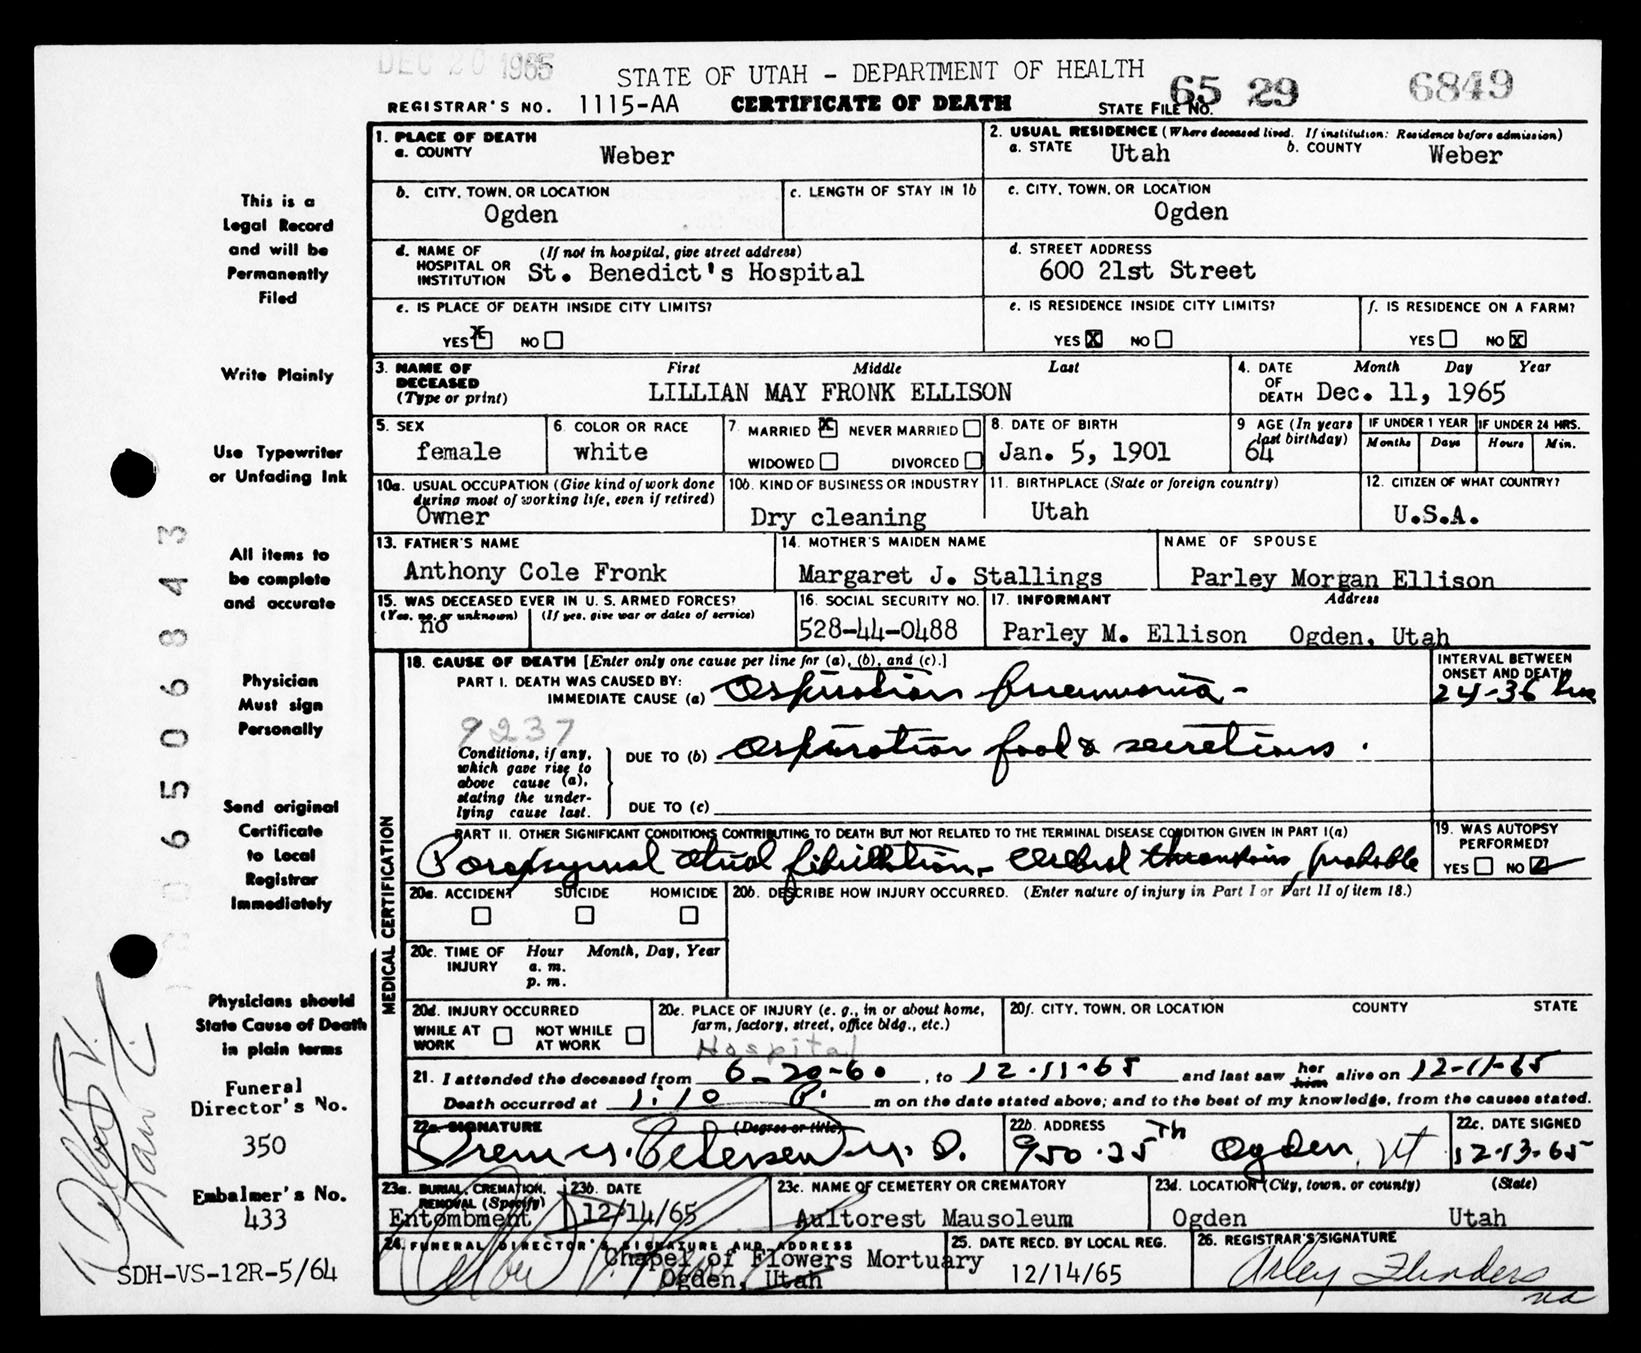 DEC 20 1965
STATE OF UTAH - DEPARTMENT OF HEALTH
REGISTRAR'S NO. 1115-AA CERTIFICATE OF DEATH STATE FILE NO. 65 29 6849
1. PLACE OF DEATH
a. COUNTY Weber
2. USUAL RESIDENCE (Where deceased lived. If institution: Residence before admission)
a. STATE Utah b. COUNTY Weber
b. CITY, TOWN, OR LOCATION Ogden
c. LENGTH OF STAY IN 1b
c. CITY, TOWN, OR LOCATION Ogden
d. NAME OF HOSPITAL OR INSTITUTION (If not in hospital, give street address) St. Benedict's Hospital
d. STREET ADDRESS 600 21st Street
e. IS PLACE OF DEATH INSIDE CITY LIMITS?
YES X NO
e. IS RESIDENCE INSIDE CITY LIMITS?
YES X NO
f. IS RESIDENCE ON A FARM?
YES NO X
3. NAME OF DECEASED (Type or print) First Middle Last
LILLIAN MAY FRONK ELLISON
4. DATE OF DEATH Month Day Year
Dec. 11, 1965
5. SEX female
6. COLOR OR RACE white
7. MARRIED X NEVER MARRIED
WIDOWED DIVORCED
8. DATE OF BIRTH Jan. 5, 1901
9 AGE (In years last birthday) 64
IF UNDER 1 YEAR Months Days
IF UNDER 24 HRS. Hours Min.
10a. USUAL OCCUPATION (Give kind of work done during most of working life, even if retired)
Owner
10b. KIND OF BUSINESS OR INDUSTRY
Dry cleaning
11. BIRTHPLACE (State or foreign country)
Utah
12. CITIZEN OF WHAT COUNTRY?
U.S.A.
13. FATHER'S NAME
Anthony Cole Fronk
14. MOTHER'S MAIDEN NAME
Margaret J. Stallings
NAME OF SPOUSE
Parley Morgan Ellison
15. WAS DECEASED EVER IN U. S. ARMED FORCES?
(Yes, no, or unknown) (If yes, give war or dates of service)
no
16. SOCIAL SECURITY NO.
528-44-0488
17. INFORMANT Address
Parley M. Ellison Ogden, Utah
MEDICAL CERTIFICATION
18. CAUSE OF DEATH [Enter only one cause per line for (a), (b), and (c).]
INTERVAL BETWEEN ONSET AND DEATH
PART I. DEATH WAS CAUSED BY:
IMMEDIATE CAUSE (a) Aspiration pneumonia - 24-36 hrs
9237
Conditions, if any, which gave rise to above cause (a), stating the underlying cause last.
DUE TO (b) Aspiration food & secretions.
DUE TO (c)
PART II. OTHER SIGNIFICANT CONDITIONS CONTRIBUTING TO DEATH BUT NOT RELATED TO THE TERMINAL DISEASE CONDITION GIVEN IN PART I(a)
Paroxysmal atrial fibrillation - cerebral thrombosis, probable
19. WAS AUTOPSY PERFORMED?
YES NO
20a. ACCIDENT SUICIDE HOMICIDE
20b. DESCRIBE HOW INJURY OCCURRED. (Enter nature of injury in Part I or Part II of item 18.)
20c. TIME OF INJURY Hour Month, Day, Year
a. m.
p. m.
20d. INJURY OCCURRED
WHILE AT WORK NOT WHILE AT WORK
20e. PLACE OF INJURY (e. g., in or about home, farm, factory, street, office bldg., etc.)
Hospital
20f. CITY, TOWN, OR LOCATION COUNTY STATE
21. I attended the deceased from 6-20-60, to 12-11-65 and last saw her him alive on 12-11-65
Death occurred at 1:10 P. m on the date stated above; and to the best of my knowledge, from the causes stated.
22a. SIGNATURE (Degree or title)
Petersen M. D.
22b. ADDRESS
950-25th Ogden, Ut
22c. DATE SIGNED
12-13-65
23a. BURIAL, CREMATION, REMOVAL (Specify)
Entombment
23b. DATE
12/14/65
23c. NAME OF CEMETERY OR CREMATORY
Aultorest Mausoleum
23d. LOCATION (City, town, or county) (State)
Ogden Utah
24. FUNERAL DIRECTOR'S SIGNATURE AND ADDRESS
Chapel of Flowers Mortuary
Ogden, Utah
25. DATE RECD. BY LOCAL REG.
12/14/65
26. REGISTRAR'S SIGNATURE
Arley Flinders
This is a
Legal Record
and will be
Permanently
Filed
Write Plainly
Use Typewriter
or Unfading Ink
All items to
be complete
and accurate
Physician
Must sign
Personally
Send original
Certificate
to Local
Registrar
Immediately
Physicians should
State Cause of Death
in plain terms
Funeral
Director's No.
350
Embalmer's No.
433
SDH-VS-12R-5/64